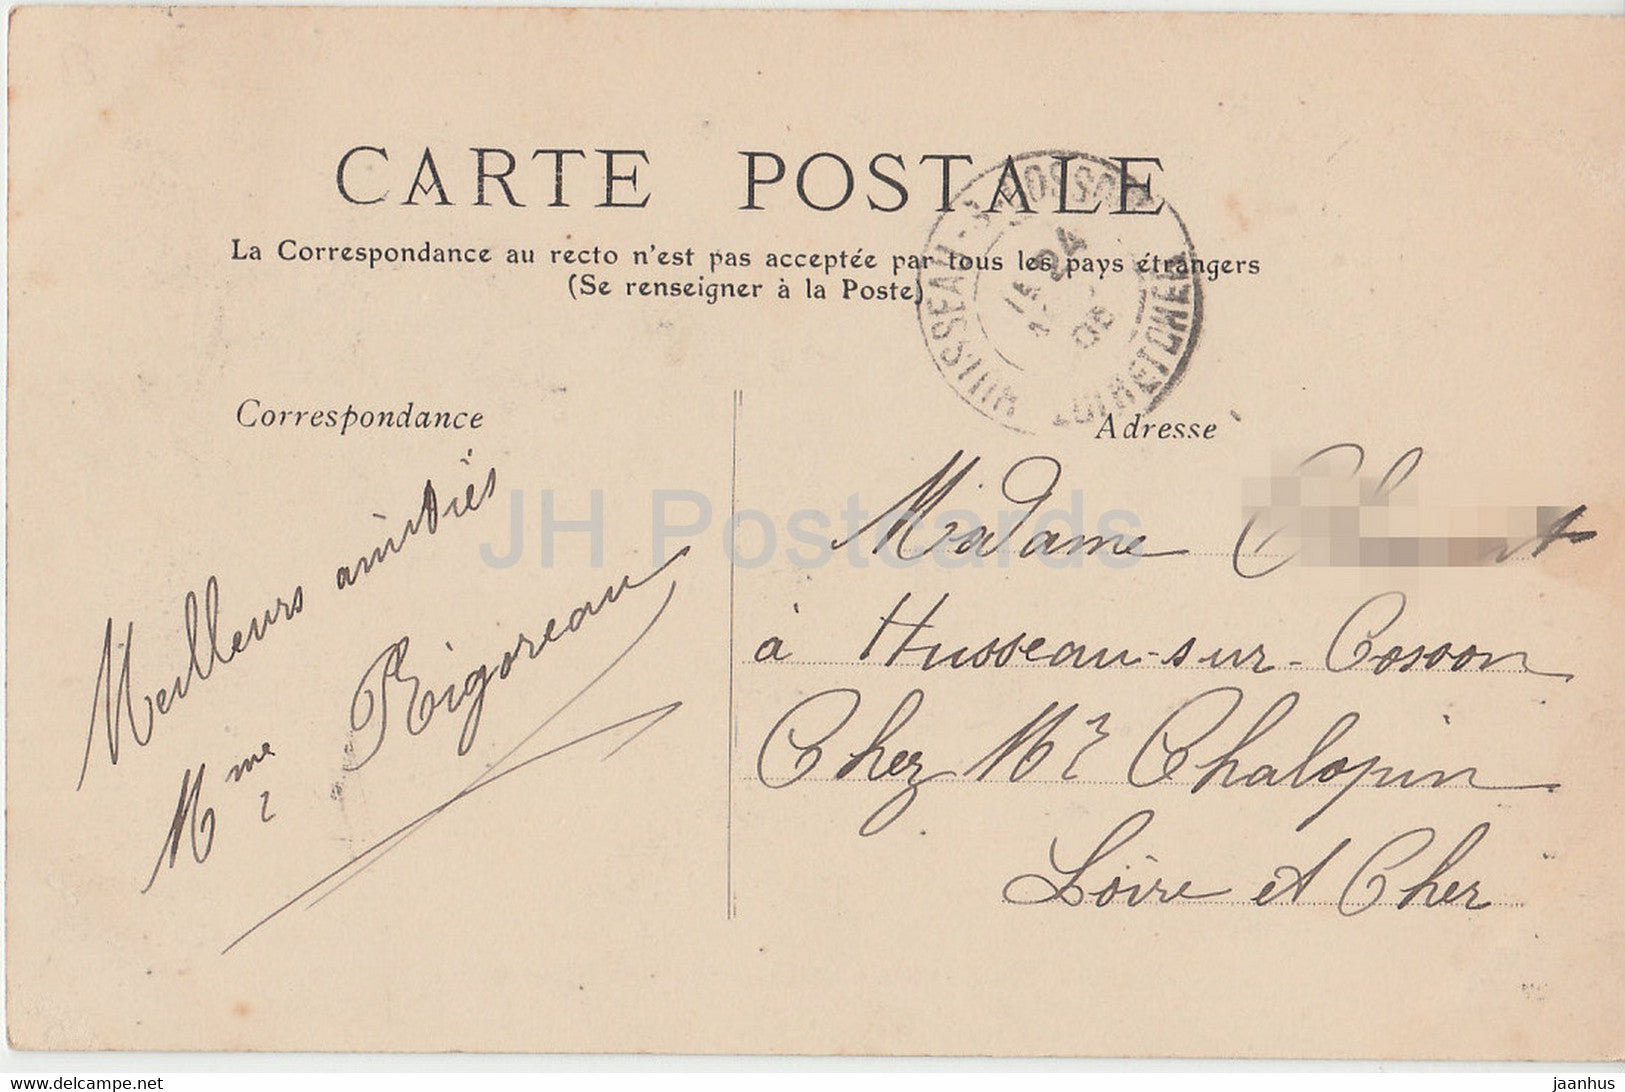 CARTE POSTALE
La Correspondance au recto n'est pas acceptée par tous les pays étrangers
(Se renseigner à la Poste)
HUISSEAU-S-COSSON
LOIR-ET-CHER
24
Correspondance
Adresse
Meilleurs amitiés
Mme Rigoreau
Madame
à Husseau-sur-Cosson
Chez Mr Chalopin
Loire et Cher
JH Postcards
www.delcampe.net
jaanhus